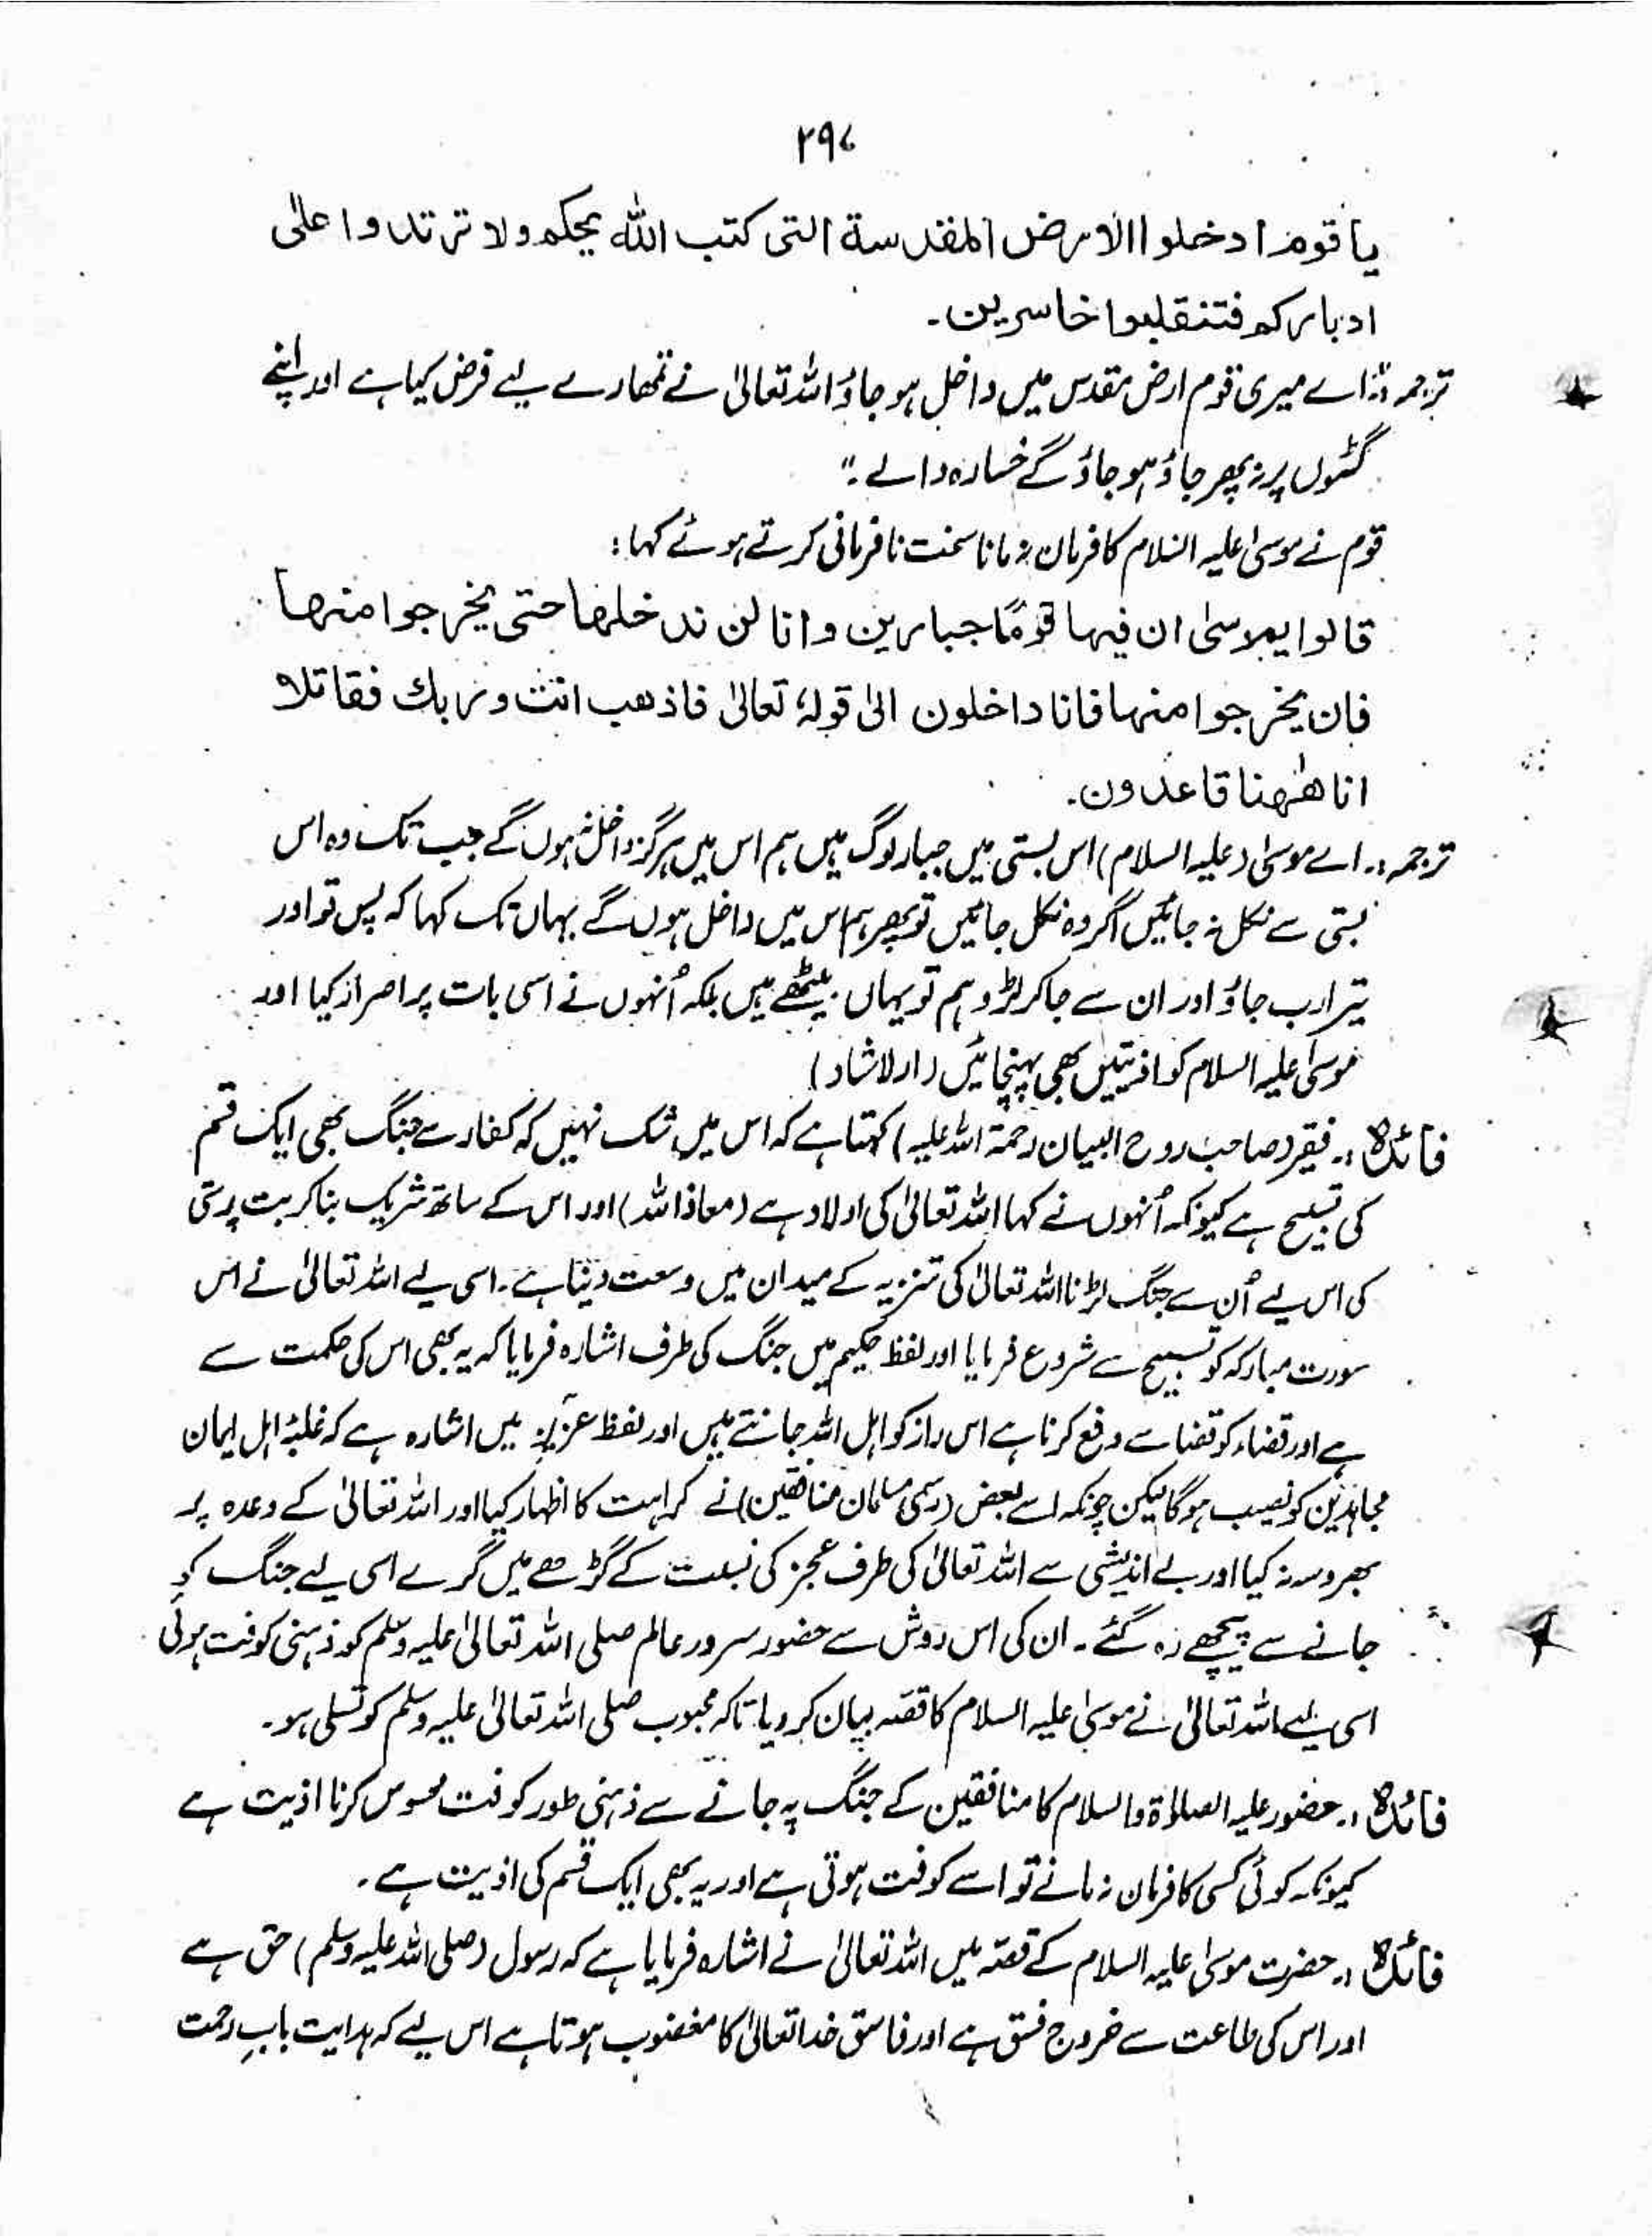 ۲۹۷
یا قوم ادخلوا الارض المقدسة التی کتب الله یحکم ولا ترتدوا علیٰ
ادبارکم فتنقلبوا خاسرین۔
ترجمہ :۔ اے میری قوم ارض مقدس میں داخل ہو جاؤ اللہ تعالیٰ نے تمھارے لیے فرض کیا ہے اور اپنے
گٹوں پر نہ پھر جاؤ ہو جاؤ گے خسارہ والے۔"
قوم نے موسیٰ علیہ السلام کا فرمان نہ مانا سخت نافرمانی کرتے ہوئے کہا :
قالوا یموسیٰ ان فیہا قومًا جبارین وانا لن ندخلہا حتی یخرجوا منہا
فان یخرجوا منہا فانا داخلون الیٰ قولہٖ تعالیٰ فاذھب انت وربك فقاتلا
انا ھٰھنا قاعدون۔
ترجمہ :۔ اے موسیٰ (علیہ السلام) اس بستی میں جبار لوگ ہیں ہم اس میں ہرگز داخل نہ ہوں گے جب تک وہ اس
بستی سے نکل نہ جائیں اگر وہ نکل جائیں تو پھر ہم اس میں داخل ہوں گے یہاں تک کہا کہ پس تو اور
تیرا رب جاؤ اور ان سے جا کر لڑو ہم تو یہاں بیٹھے ہیں بلکہ اُنہوں نے اسی بات پر اصرار کیا اور
موسیٰ علیہ السلام کو اذیتیں بھی پہنچائیں (الارشاد)
فائدہ :۔ فقیر (صاحب روح البیان رحمۃ اللہ علیہ) کہتا ہے کہ اس میں شک نہیں کہ کفار سے جنگ بھی ایک قسم
کی تسبیح ہے کیونکہ اُنہوں نے کہا اللہ تعالیٰ کی اولاد ہے (معاذ اللہ) اور اس کے ساتھ شریک بنا کر بت پرستی
کی اس لیے اُن سے جنگ لڑنا اللہ تعالیٰ کی تنزیہ کے میدان میں وسعت دینا ہے۔ اسی لیے اللہ تعالیٰ نے اس
سورت مبارکہ کو تسبیح سے شروع فرمایا اور لفظ حکیم میں جنگ کی طرف اشارہ فرمایا کہ یہ بھی اس کی حکمت سے
ہے اور قضاء کو قضا سے دفع کرنا ہے اس راز کو اہل اللہ جانتے ہیں اور لفظ عزیز میں اشارہ ہے کہ غلبۂ اہل ایمان
مجاہدین کو نصیب ہوگا لیکن چونکہ اسے بعض (رسمی مسلمان منافقین) نے کراہت کا اظہار کیا اور اللہ تعالیٰ کے وعدہ پر
بھروسہ نہ کیا اور بے اندیشی سے اللہ تعالیٰ کی طرف عجز کی نسبت کے گڑھے میں گرے اسی لیے جنگ کو
جانے سے پیچھے رہ گئے۔ ان کی اس روش سے حضور سرور عالم صلی اللہ تعالیٰ علیہ وسلم کو ذہنی کوفت ہوئی
اسی لیے اللہ تعالیٰ نے موسیٰ علیہ السلام کا قصہ بیان کر دیا تاکہ محبوب صلی اللہ تعالیٰ علیہ وسلم کو تسلی ہو۔
فائدہ :۔ حضور علیہ الصلوٰۃ والسلام کا منافقین کے جنگ پہ جانے سے ذہنی طور کوفت محسوس کرنا اذیت ہے
کیونکہ کوئی کسی کا فرمان نہ مانے تو اسے کوفت ہوتی ہے اور یہ بھی ایک قسم کی اذیت ہے۔
فائدہ :۔ حضرت موسیٰ علیہ السلام کے قصہ میں اللہ تعالیٰ نے اشارہ فرمایا ہے کہ رسول (صلی اللہ علیہ وسلم) حق ہے
اور اس کی طاعت سے خروج فسق ہے اور فاسق خدا تعالیٰ کا مغضوب ہوتا ہے اس لیے کہ ہدایت بابِ رحمت